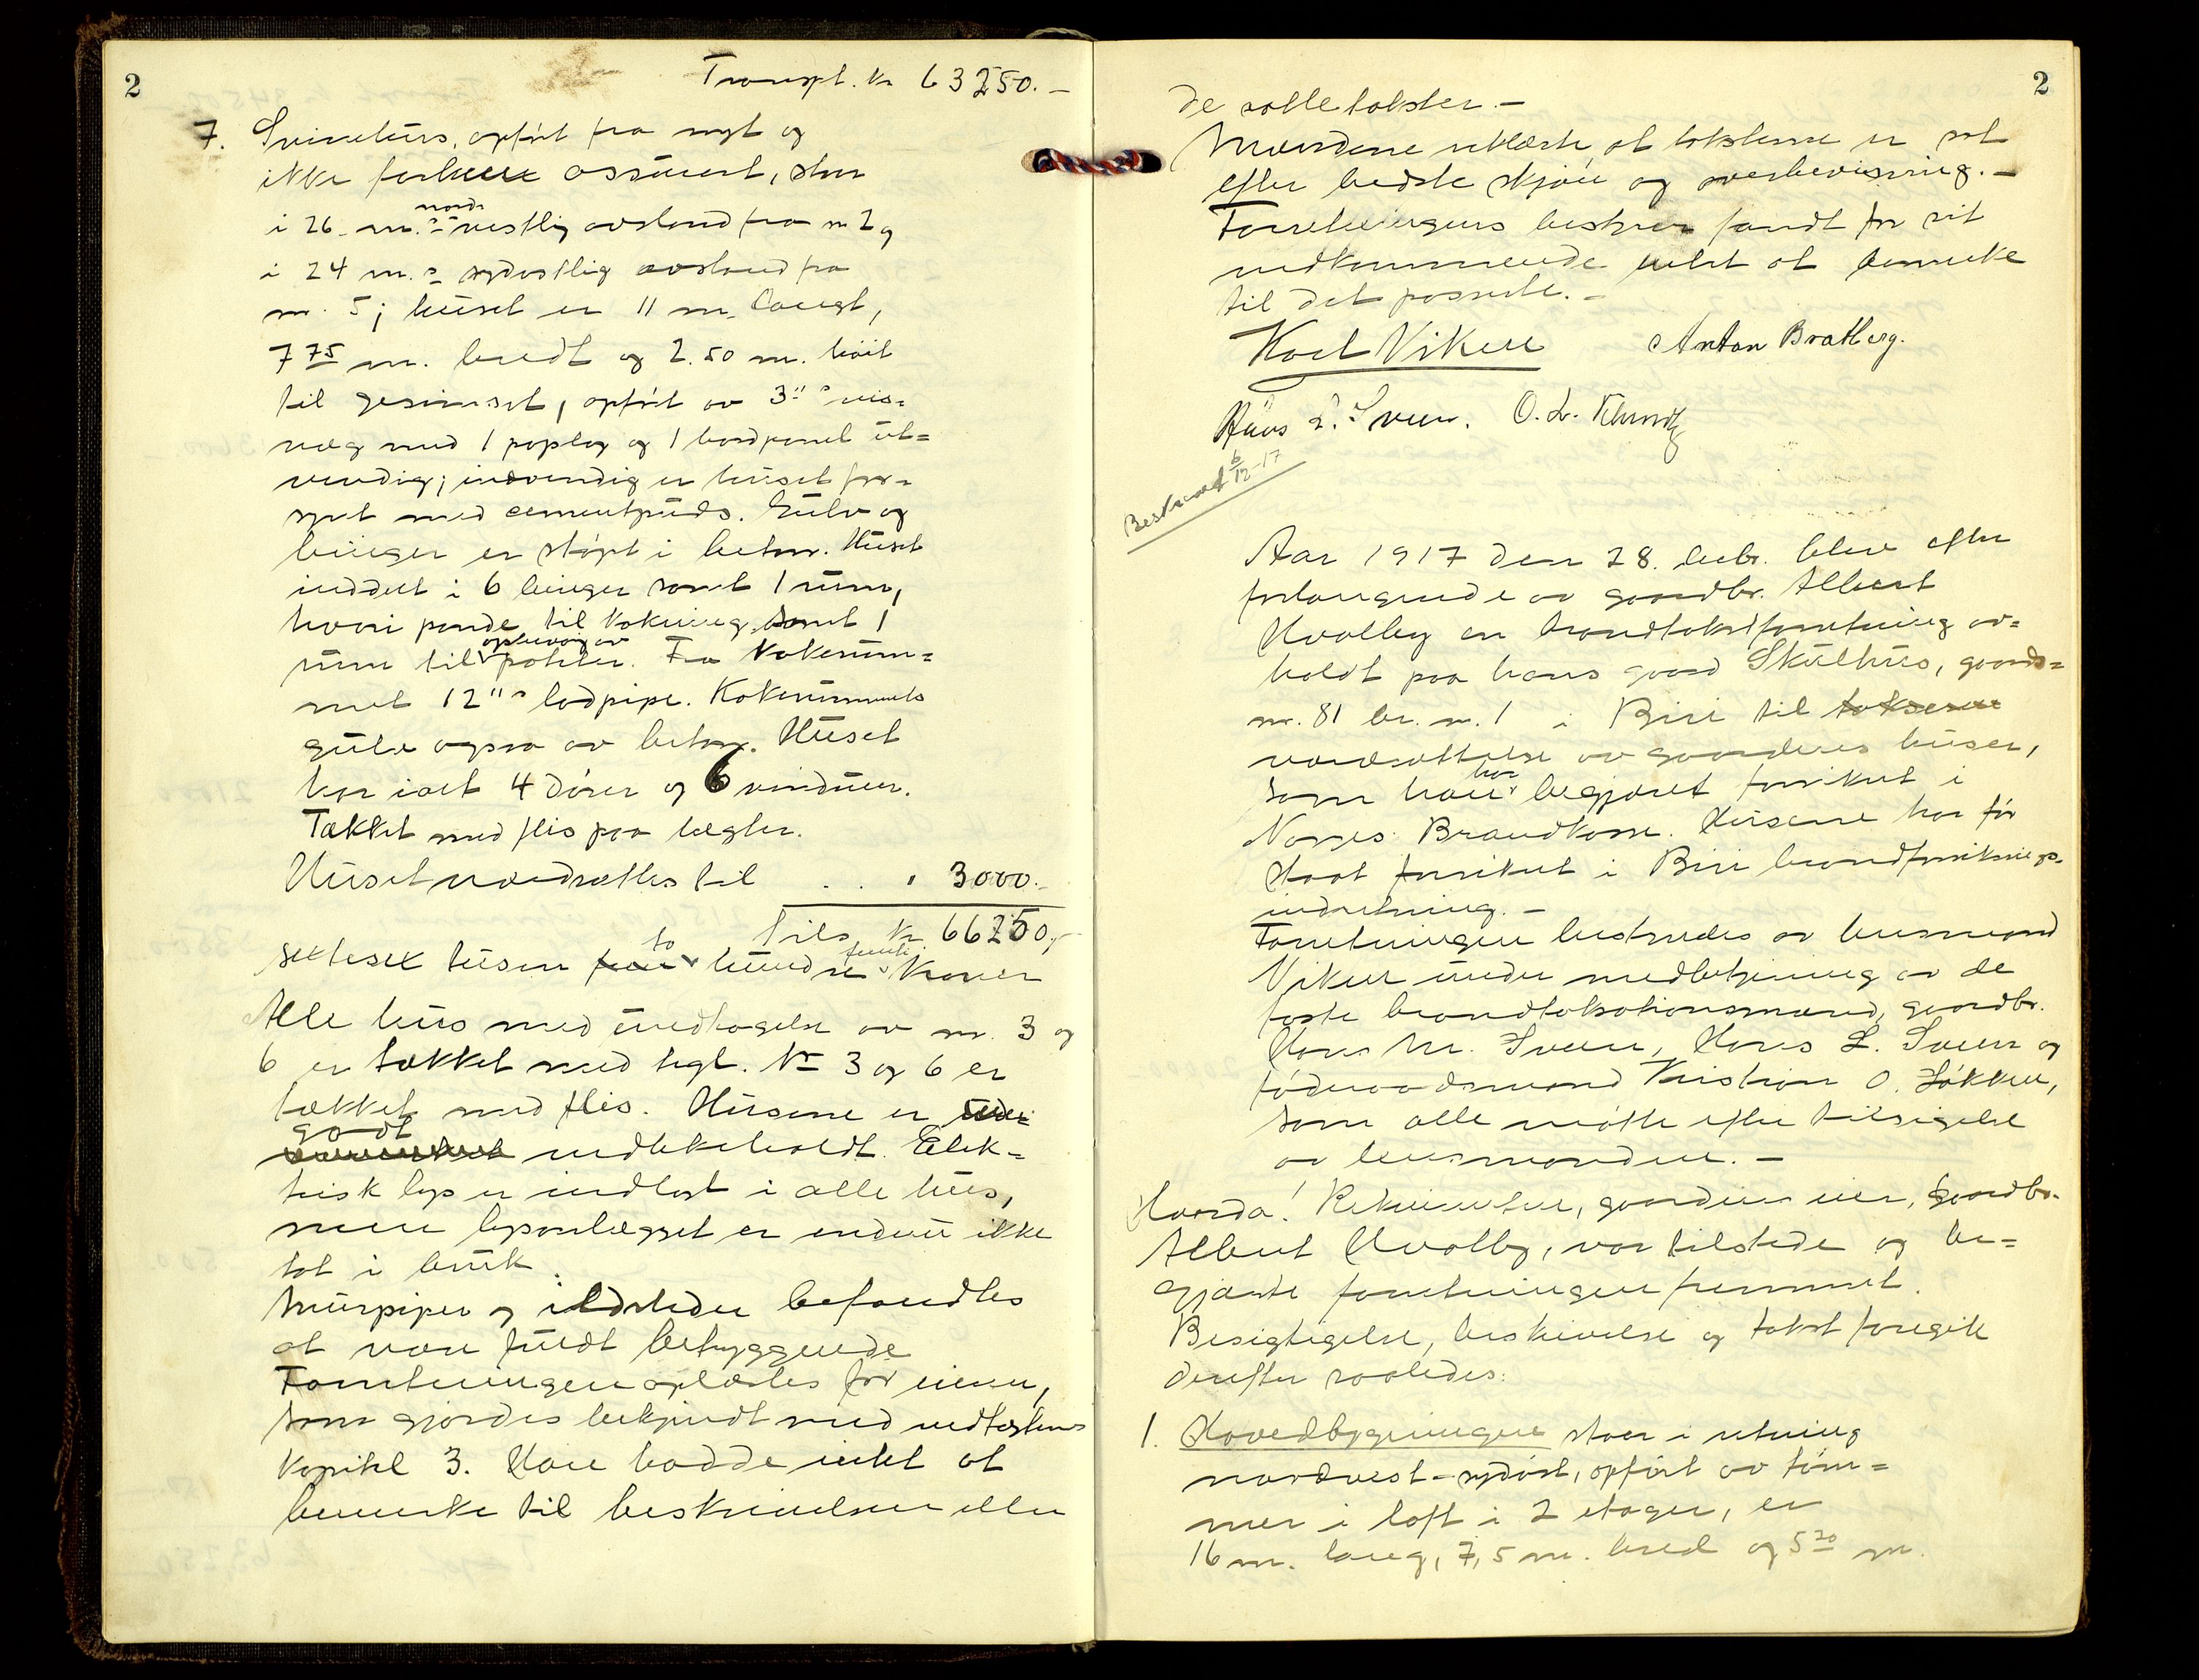 2
Transpt. kr 63250.-
7. Svinehus, opført fra nyt og
ikke forhen assurert, staar
i 26 m.s nordvestlig avstand fra nr 2 og
i 24 m.s sydostlig avstand fra
nr. 5; huset er 11 m. langt,
7 75 m. bredt og 2.50 m. høit
til gesimset, opført av 3"s reis-
væg med 1 paplag og 1 bordpanel ut-
vendig; indvendig er huset for-
synt med cementpuds. Gulv og
binger er støpt i beton. Huset
inddelt i 6 binger samt 1 rum,
hvori pande til kokning, samt 1
rum til opbevaring av poteter. Fra kokerum-
met 12"s lodpipe. Kokerummets
gulv ogsaa av beton. Huset
har ialt 4 dører og 6 vinduer.
Tækket med flis paa lægter.
Huset værdsættes til . . " 3000.-
Tils. kr 66250,-
sektisex tusen to hundre femti kroner
Alle hus med undtagelse av nr. 3 og
6 er tækket med tegl. Nr 3 og 6 er
tækket med flis. Husene er
godt vedlikeholdt. Elek-
trisk lys er indlagt i alle hus,
men lysanlægget er endnu ikke
tat i bruk.
Murpiper og ildsteder befandtes
at være fuldt betryggende
Forretningen oplæstes for eieren,
som gjordes bekjendt med vedtægtens
kapitel 3. Han hadde intet at
bemerke til beskrivelsen eller
2
de satte takster.-
Mændene erklærte at taksterne er sat
efter bedste skjøn og overbevisning.-
Forretningens bestyrer fandt for sit
vedkommende intet at bemerke
til det passerte.-
Karl Viken Anton Bratberg.
Hans L. Sveen. O. L. Klundby
Beskrevet 6/12-17
Aar 1917 den 28. debr. blev efter
forlangende av gaardbr. Albert
Hvalby en brandtakstforretning av-
holdt paa hans gaard Skulhus, gaards-
nr. 81 br. nr. 1 i Biri til taksering
værdsættelse av gaardens huser,
som han har begjæret forsikret i
Norges Brandkasse. Husene har før
staat forsikret i Biri brandforsiknings-
indretning.-
Forretningen bestyredes av lensmand
Viken under medbetjening av de
faste brandtakstationsmænd, gaardbr.
Hans M. Sveen, Hans L. Sveen og
føderaadsmand Kristian O. Løkken,
som alle møtte efter tilsigelse
av lensmanden.-
Hvorda! Rekvirenten, gaardens eier, gaardbr.
Albert Hvalby, var tilstede og be-
gjærte forretningen fremmet.
Besigtigelse, beskrivelse og takst foregik
derefter saaledes:
1. Hovedbygningen staar i retning
nordvest-sydøst, opført av tøm-
mer i loft i 2 etager, er
16 m. lang, 7,5 m. bred og 5 20 m.